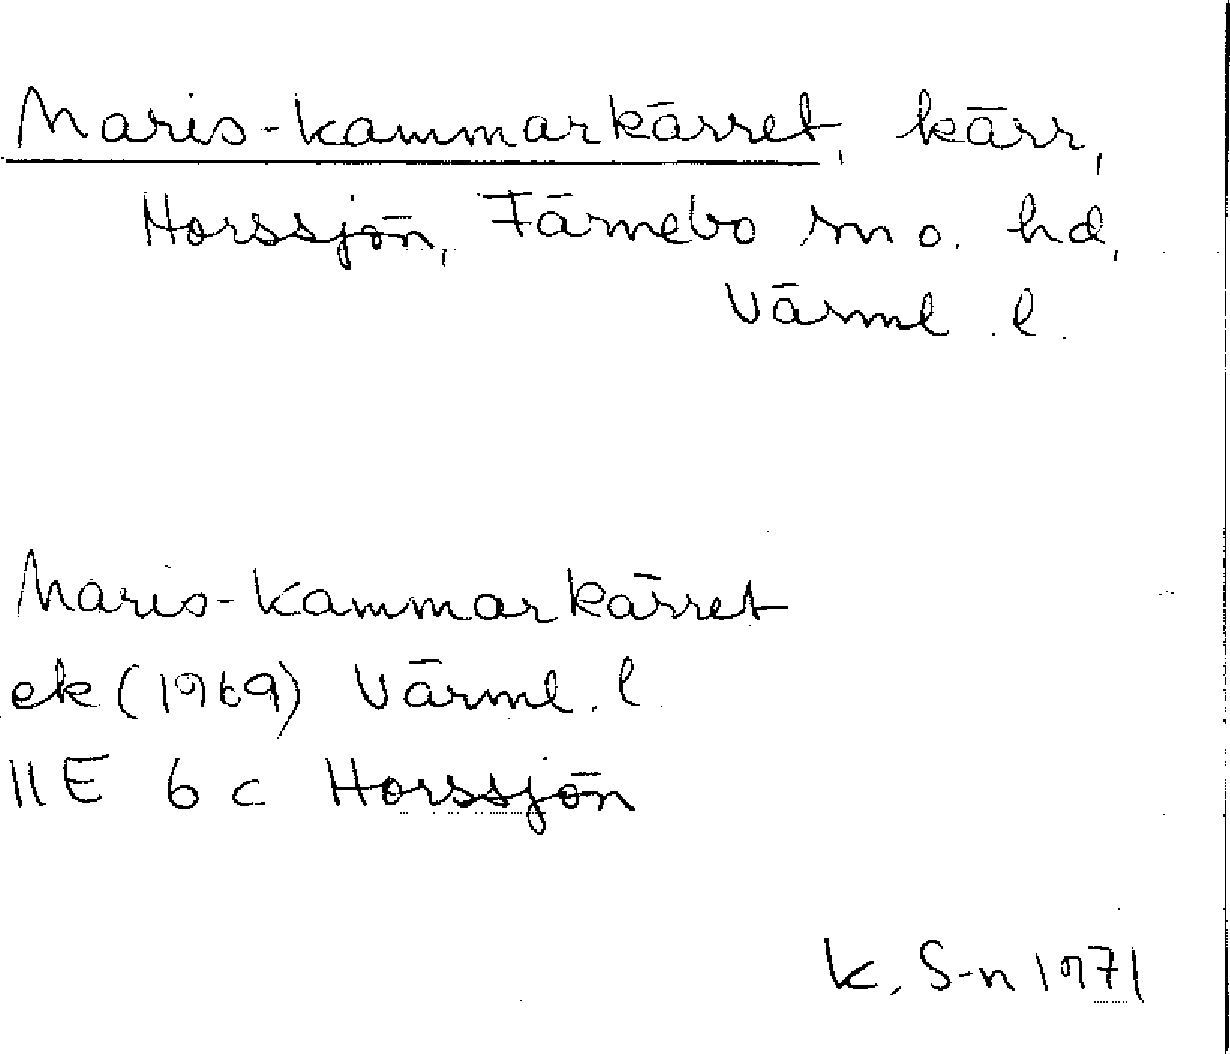 Maris-kammarkärret, kärr,
Horssjön, Färnebo sn o. hd,
Värml. l.
Maris-kammarkärret
ek (1969) Värml. l
11E 6c Horssjön
K. S-n 1971